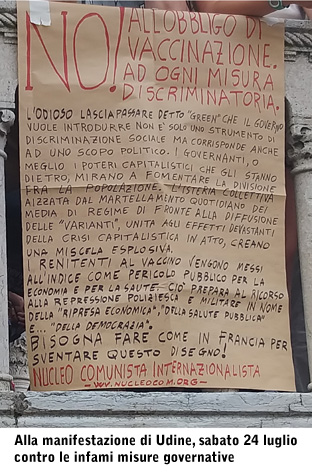 NO! ALL'OBBLIGO DI
VACCINAZIONE.
AD OGNI MISURA
DISCRIMINATORIA.
L'ODIOSO LASCIAPASSARE DETTO "GREEN" CHE IL GOVERNO
VUOLE INTRODURRE NON E' SOLO UNO STRUMENTO DI
DISCRIMINAZIONE SOCIALE MA CORRISPONDE ANCHE
AD UNO SCOPO POLITICO. I GOVERNANTI, O
MEGLIO I POTERI CAPITALISTICI CHE GLI STANNO
DIETRO, MIRANO A FOMENTARE LA DIVISIONE
FRA LA POPOLAZIONE. L'ISTERIA COLLETTIVA
AIZZATA DAL MARTELLAMENTO QUOTIDIANO DEI
MEDIA DI REGIME DI FRONTE ALLA DIFFUSIONE
DELLE "VARIANTI", UNITA AGLI EFFETTI DEVASTANTI
DELLA CRISI CAPITALISTICA IN ATTO, CREANO
UNA MISCELA ESPLOSIVA.
I RENITENTI AL VACCINO VENGONO MESSI
ALL'INDICE COME PERICOLO PUBBLICO PER LA
ECONOMIA E PER LA SALUTE. CIO' PREPARA IL RICORSO
ALLA REPRESSIONE POLIZIESCA E MILITARE IN NOME
DELLA "RIPRESA ECONOMICA", "DELLA SALUTE PUBBLICA"
E... "DELLA DEMOCRAZIA".
BISOGNA FARE COME IN FRANCIA PER
SVENTARE QUESTO DISEGNO!
NUCLEO COMUNISTA INTERNAZIONALISTA
- WWW.NUCLEOCOM.ORG -
Alla manifestazione di Udine, sabato 24 luglio
contro le infami misure governative